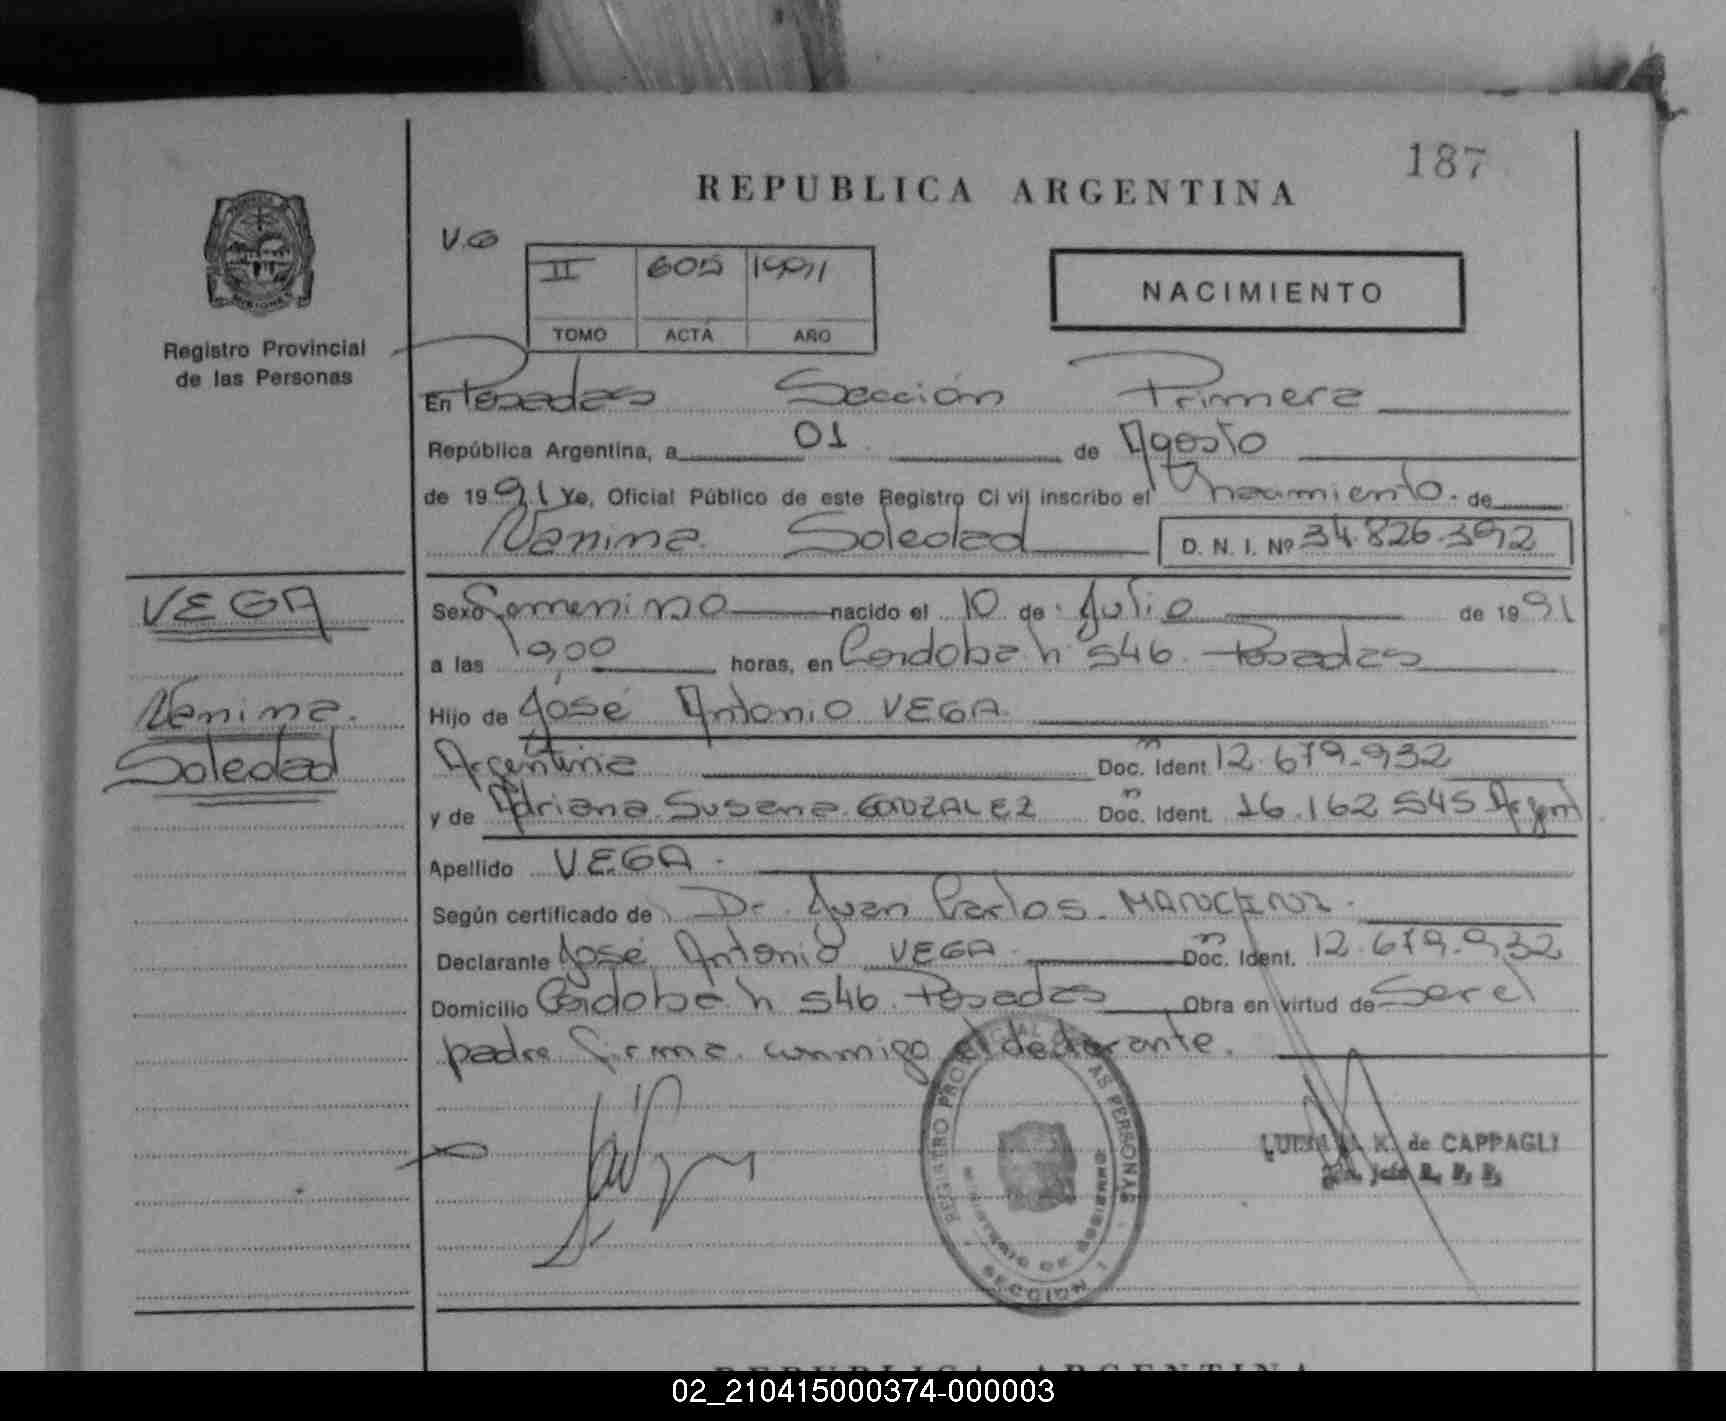 187
REPUBLICA ARGENTINA
V.G
II 605 1991
TOMO ACTA AÑO
NACIMIENTO
Registro Provincial
de las Personas
En Posadas Sección Primera
República Argentina, a 01 de Agosto
de 1991 Yo, Oficial Público de este Registro Civil inscribo el nacimiento de
Yanina Soledad D. N. I. Nº 34.826.392
VEGA
Sexo Femenino nacido el 10 de Julio de 1991
a las 19,00 horas, en Córdoba n 546 Posadas
Yanina
Soledad
Hijo de José Antonio VEGA
Argentina Doc. Ident. 12.679.932
y de Adriana Susana GONZALEZ Doc. Ident. 16.162.545 Argent
Apellido VEGA
Según certificado de Dr. Juan Carlos
Declarante José Antonio VEGA Doc. Ident. 12.679.932
Domicilio Córdoba n 546 Posadas Obra en virtud de Ser el
padre firma conmigo el declarante.
REGISTRO PROVINCIAL DE LAS PERSONAS
MINISTERIO DE GOBIERNO
SECCION 1
de CAPPAGLI
REPUBLICA ARGENTINA
02_210415000374-000003